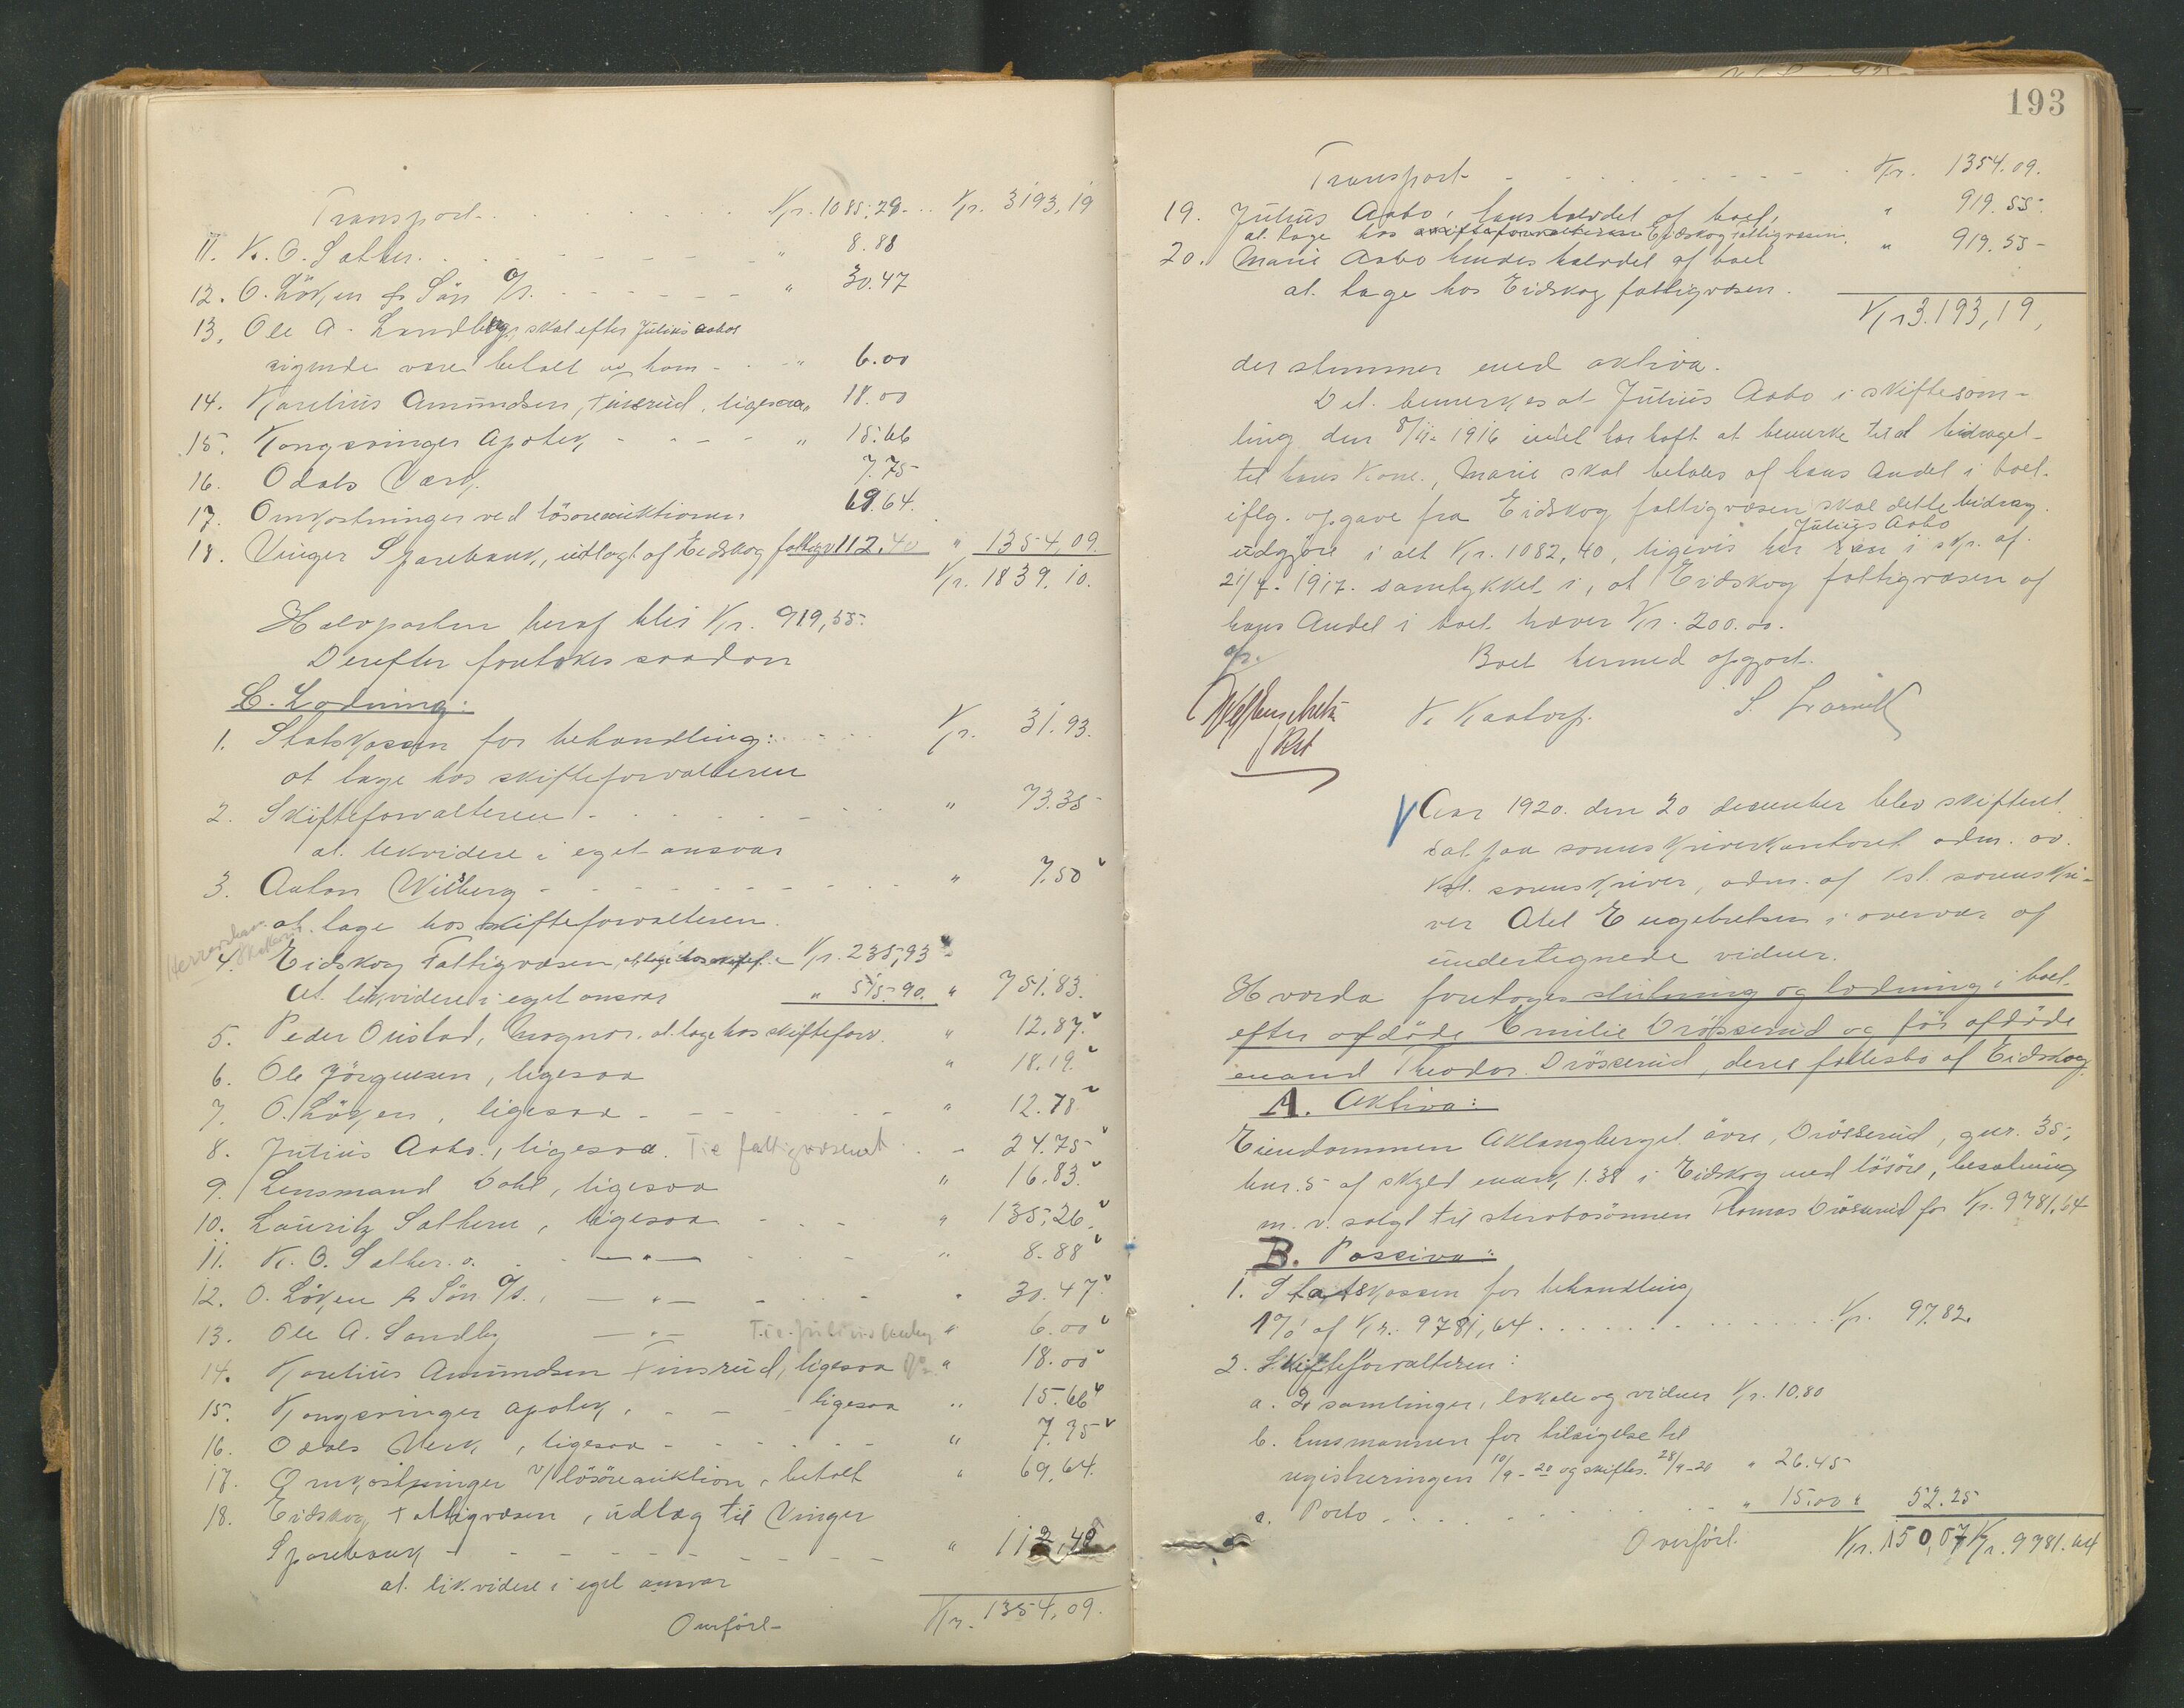 Transport Kr. 1085,29 Kr. 3193,19
11. K. O. Sæther " 8.88
12. O. Löken & Sön A/S. " 30.47
13. Ole A. Sandby, skal efter Julius Aabos
sigende være betalt av ham " 6.00
14. Karelius Amundsen, Finsrud, ligesaa " 18.00
15. Kongsvinger Apotek " 15.66
16. Odals Værk 7.75
17. Omkostninger ved lösöreauktionen 69.64.
18. Vinger Sparebank, utlagt af Eidskog fattigv. 112.40 " 1354,09.
Kr. 1839.10.
Halvparten herav blir Kr. 919,55.
Derefter foretokes saadan
C. Lodning:
1. Statskassen for behandling: Kr. 31.93.
at tage hos skifteforvalteren
2. Skifteforvalteren " 73.35
at likvidere i eget ansvar
3. Anton Wiberg " 7.50
at tage hos skifteforvalteren.
4. Eidskog Fattigvæsen, at tage hos skiftef. Kr. 235,93
At likvidere i eget ansvar " 515.90. " 751.83.
5. Peder Oustad, Magnor, at tage hos skifteforv. " 12.87.
6. Ole Jörgensen, ligesaa " 18.19.
7. O. Löken, ligesaa " 12.78
8. Julius Aabo, ligesaa. Til fattigvæsenet 24.75
9. Lensmand Dahl, ligesaa " 16.83.
10. Lauritz Sæthern, ligesaa " 135,26.
11. K. O. Sæther — " — " 8.88
12. O. Löken & Sön A/S., — " — " 30.47
13. Ole A. Sandby — " — Til Julius Aabo " 6.00
14. Karelius Amundsen Finsrud, ligesaa " 18.00
15. Kongsvinger apotek, ligesaa " 15.66
16. Odals Verk, ligesaa " 7.75
17. Omkostninger v/ lösöreauktion, betalt " 69,64.
18. Eidskog Fattigvæsen, udlæg til Vinger
Sparebank " 112,40
at likvidere i eget ansvar
Overført Kr. 1354,09.
193
Transport Kr. 1354.09.
19. Julius Aabo, hans halvdel af boet, " 919.55.
at tage hos skifteforvalteren Eidskog fattigvæsen.
20. Marie Aabo hendes halvdel af boet " 919.55
at tage hos Eidskog fattigvæsen.
Kr 3.193,19,
der stemmer med aktiva.
Det bemerkes at Julius Aabo i skiftesam-
ling den 8/11 1916 intet har haft at bemerke til at bidraget
til hans Kone, Marie skal betales af hans Andel i boet.
iflg. opgave fra Eidskog fattigvæsen skal dette bidrag
udgjöre i alt Kr. 1082,40, ligevis har Julius Aabo i skr. af
21/7-1917 samtykket i, at Eidskog fattigvæsen af
hans Andel i boet hæver Kr. 200.00.
Boet hermed opgjort.
K. Kaatorp.
Aar 1920. den 20 desember blev skifteret
sat paa sorenskriverkontoret adm. av
kst. sorenskriver, adm. af kst. sorenskri-
ver Atel Engebretsen i overvær af
undertegnede vidner.
Hvorda foretoges slutning og lodning i boet
efter afdöde Emilie Drösserud og för afdöde
mand Theodor Drösserud, deres fællesbo af Eidskog.
A. Aktiva:
Eiendommen Aklangberget övre, Drösserud, gnr. 35,
bnr. 5 af skyld mark 1.38 i Eidskog med lösöre, besætning
m. v. solgt til sterobosönnen Thomas Drösserud for Kr. 9781,64
B. Passiva:
1. Statskassen for behandling
1% af Kr. 9781,64 Kr. 97.82.
2. Skifteforvalteren:
a. 2 samlinger, lokale og vidner Kr. 10.80
b. Lensmannen for tilsigelse til
registreringen 10/9-20 og skiftes. 28/9-20 " 26.45
c. Porto " 15.00 52.25
Overfört Kr. 150,07 Kr. 9781.64